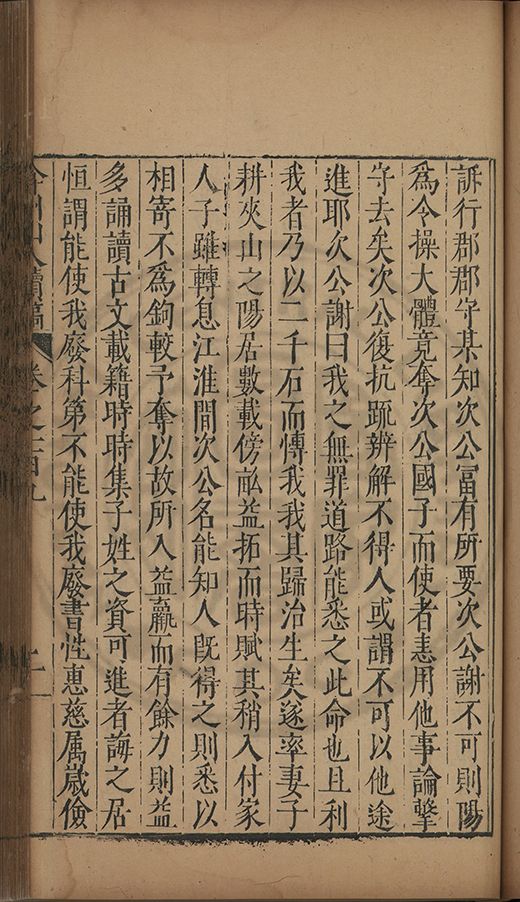 訴行郡郡守某知次公冨有所要次公謝不可則陽
爲令操大體竟奪次公國子而使者恚用他事論擊
守去矣次公復抗疏辨解不得人或謂不可以他途
進耶次公謝曰我之無罪道路能悉之此命也且利
我者乃以二千石而慱我我其歸治生矣遂率妻子
耕夾山之陽居數載傍畝益拓而時賦其稍入付家
人子雖轉息江淮間次公名能知人旣得之則悉以
相寄不爲鉤較予奪以故所入益贏而有餘力則益
多誦讀古文載籍時時集子姓之資可進者誨之居
恒謂能使我廢科第不能使我廢書性惠慈属嵗儉
弇州山人續稿 卷之